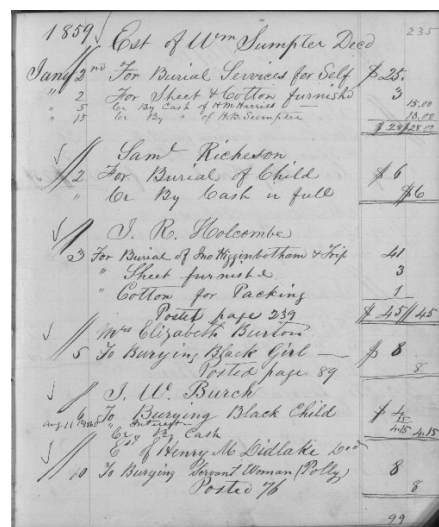 1859 235
Est of Wm Sumpter Decd
Jany 2nd For Burial Services for Self $25.
" 2 For Sheet & Cotton furnishd 3
" 5 Cr By Cash of H M Harris 15.00
" 15 Cr By " of H. B. Sumpter 13.00
$28 $28.00
Saml Richeson
2 For Burial of Child $6
" Cr By Cash in full $6
J. R. Holcombe
3 For Burial of Jno Higginbotham & Trip 41
" Sheet furnished 3
" Cotton for Packing 1
Posted page 239 $45 $45
Mrs Elizabeth Burton
5 To Burying Black Girl — $8
Posted page 89 8
J. W. Burch
6 To Burying Black Child $4
Aug 11 " Interest 15
Cr By Cash 4.15 4.15
Est of Henry M Didlake Decd
10 To Burying Servant Woman (Polly) 8
Posted 76 8
99